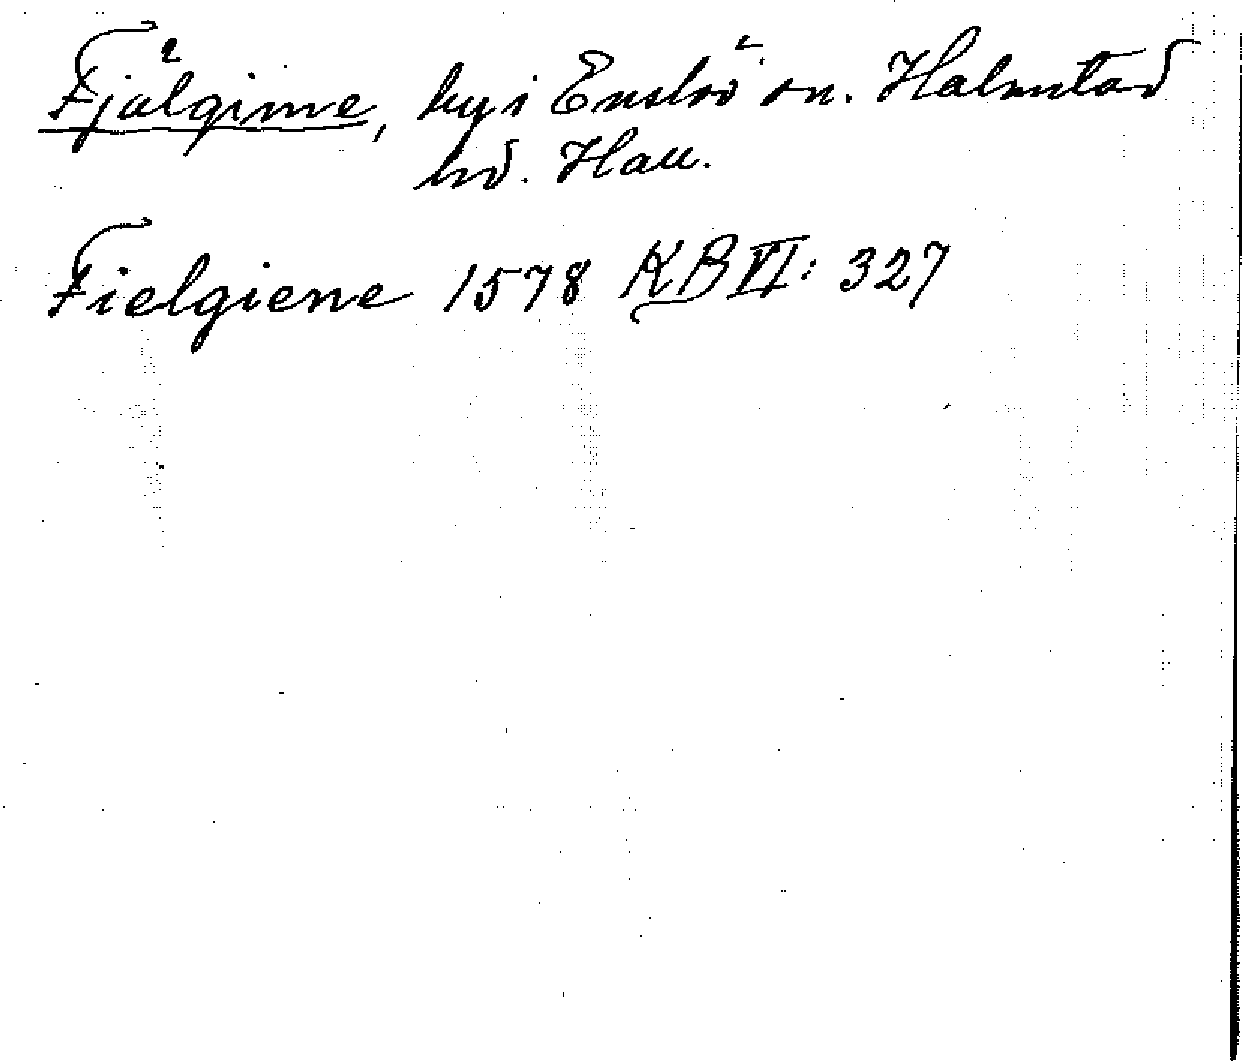 Fjälgime, by i Enslöv sn. Halmstad
hd. Hall.
Fielgiene 1578 KB VI: 327